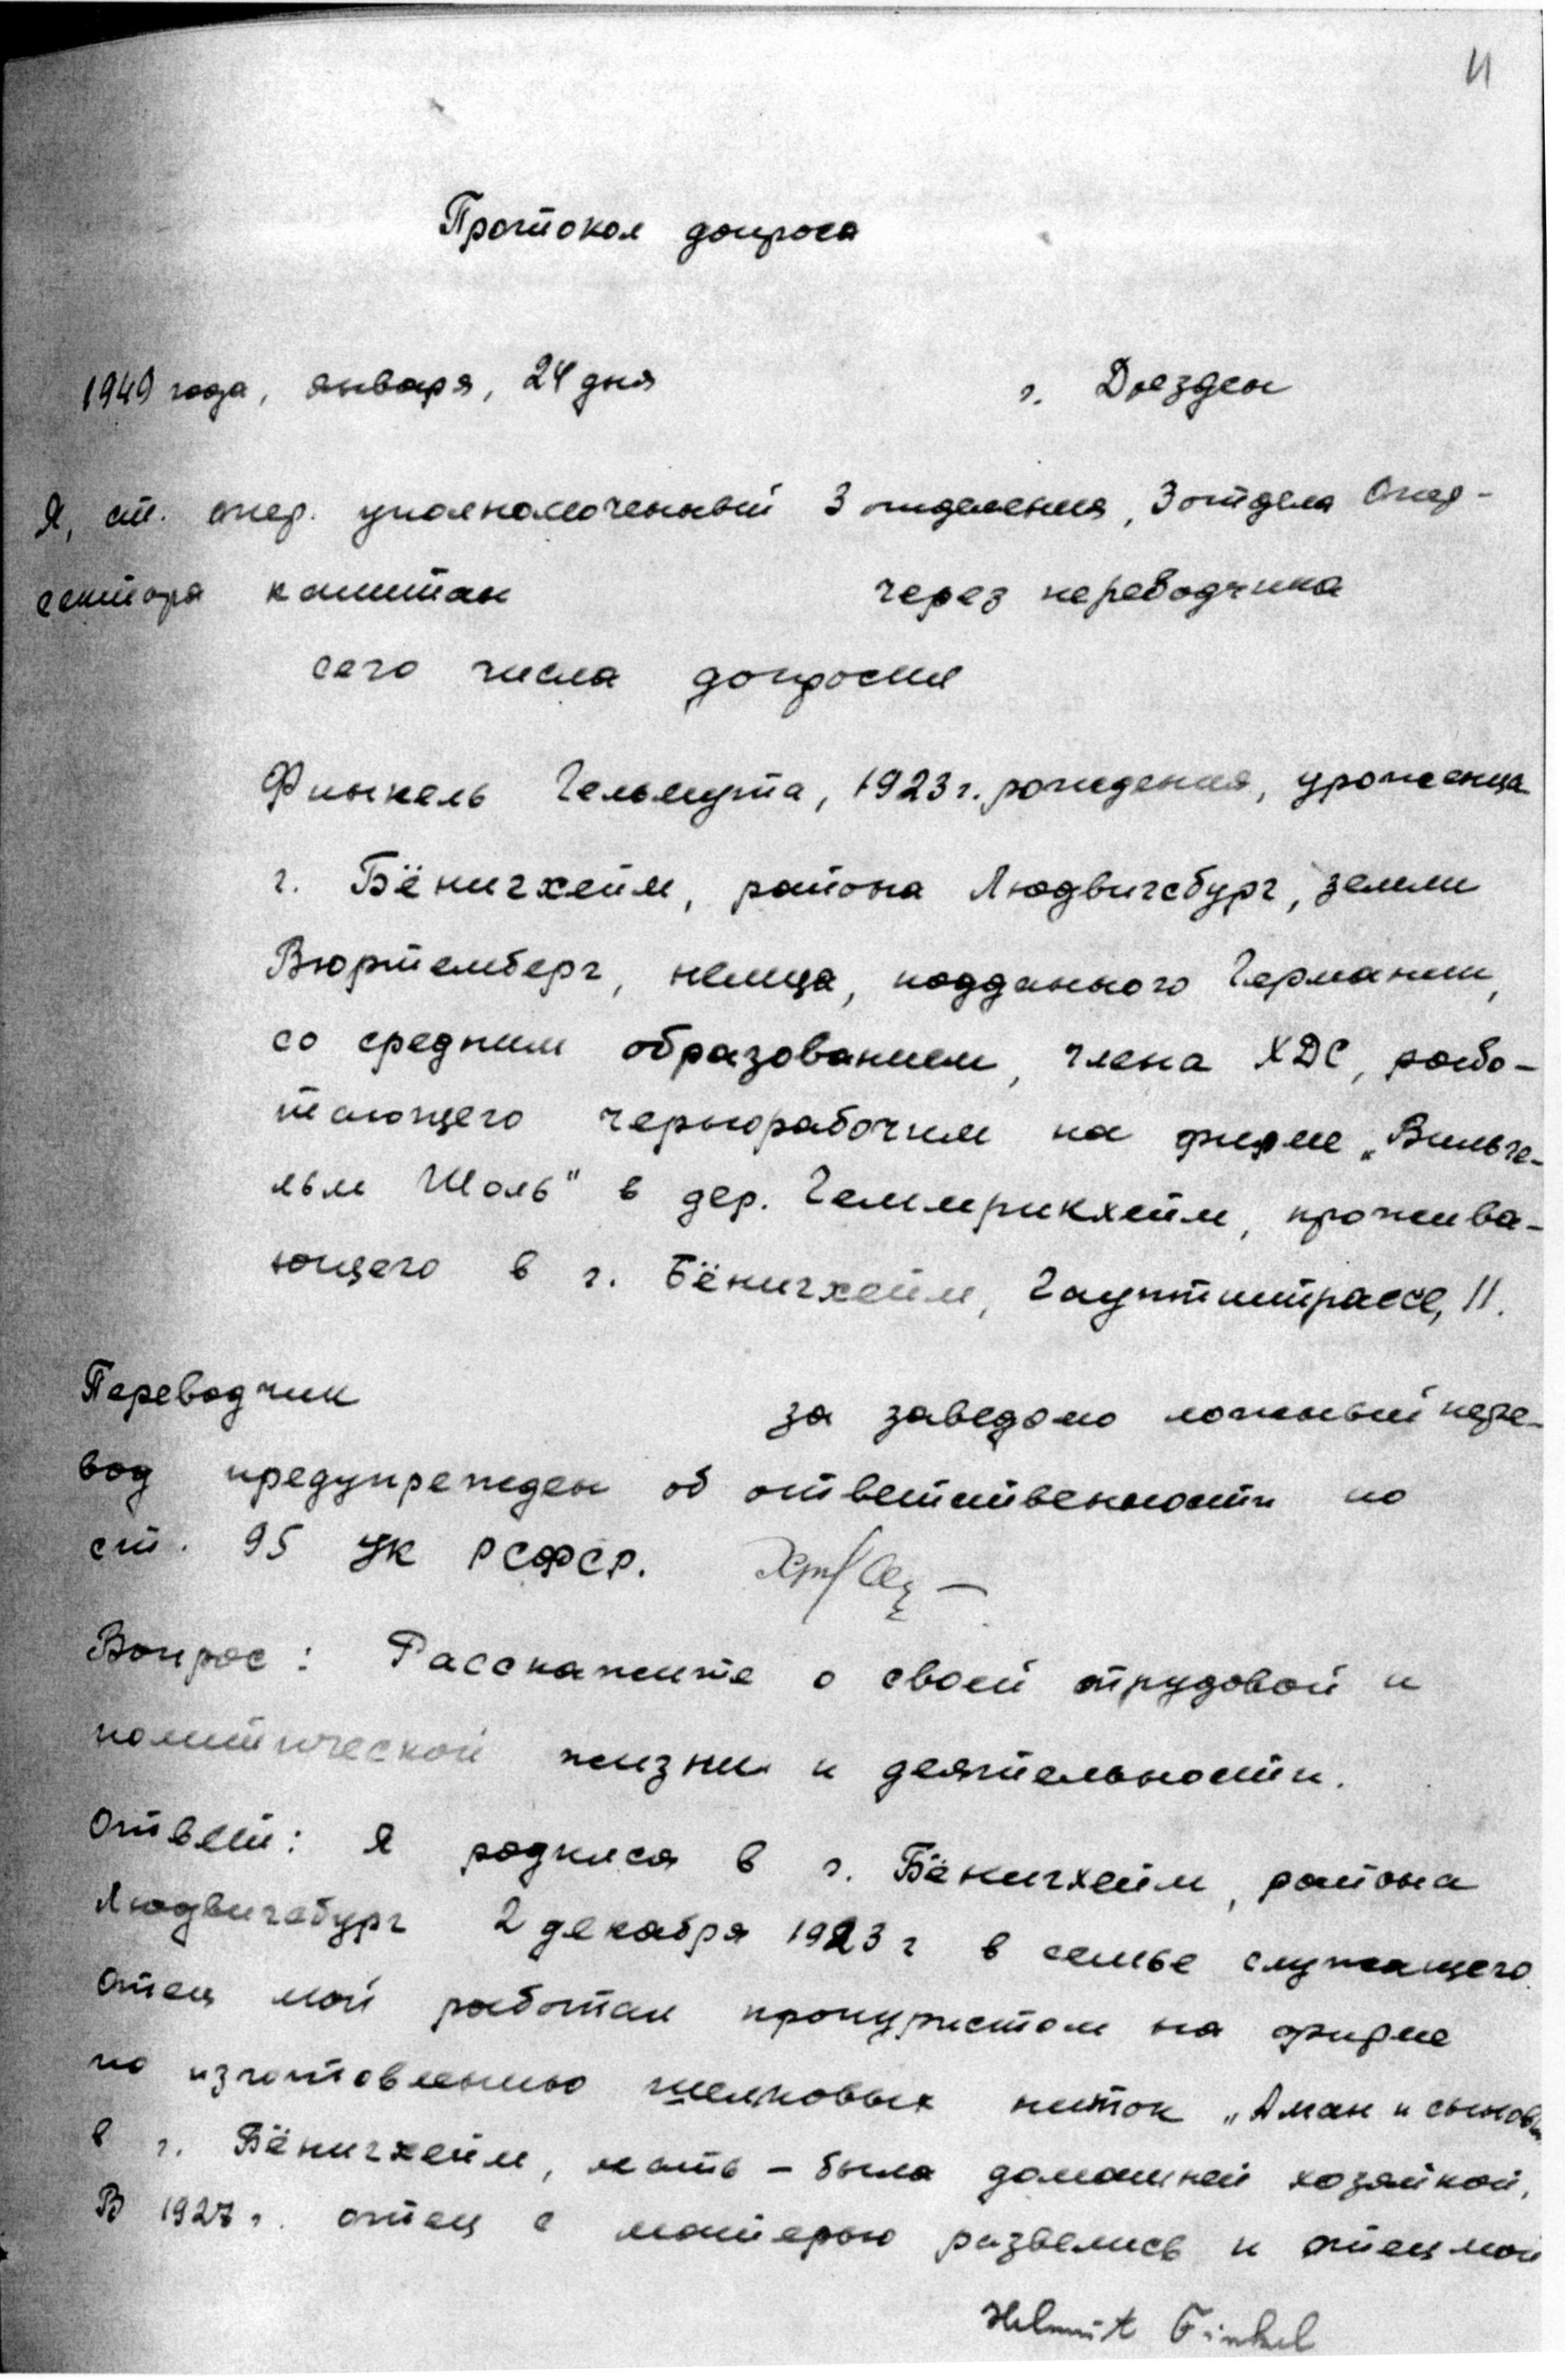 11
Протокол допроса
1949 года, января, 24 дня г. Дрезден
Я, ст. опер. уполномоченный 3 отделения, 3 отдела Опер-
сектора капитан через переводчика
сего числа допросил
Финкель Гельмута, 1923 г. рождения, уроженца
г. Бёнигхейм, района Людвигсбург, земли
Вюртемберг, немца, подданного Германии,
со средним образованием, члена ХДС, рабо-
тающего чернорабочим на фирме „Вильге-
льм Шоль" в дер. Геммрикхейм, прожива-
ющего в г. Бёнигхейм, Гауптштрассе, 11.
Переводчик за заведомо ложный пере-
вод предупрежден об ответственности по
ст. 95 УК РСФСР.
Вопрос: Расскажите о своей трудовой и
политической жизни и деятельности.
Ответ: Я родился в г. Бёнигхейм, района
Людвигсбург 2 декабря 1923 г в семье служащего.
Отец мой работал прокуристом на фирме
по изготовлению шелковых ниток „Аман и сыновья
в г. Бёнигхейм, мать – была домашней хозяйкой.
В 1927 г. отец с матерью развелись и отец мой
Helmut Finkel